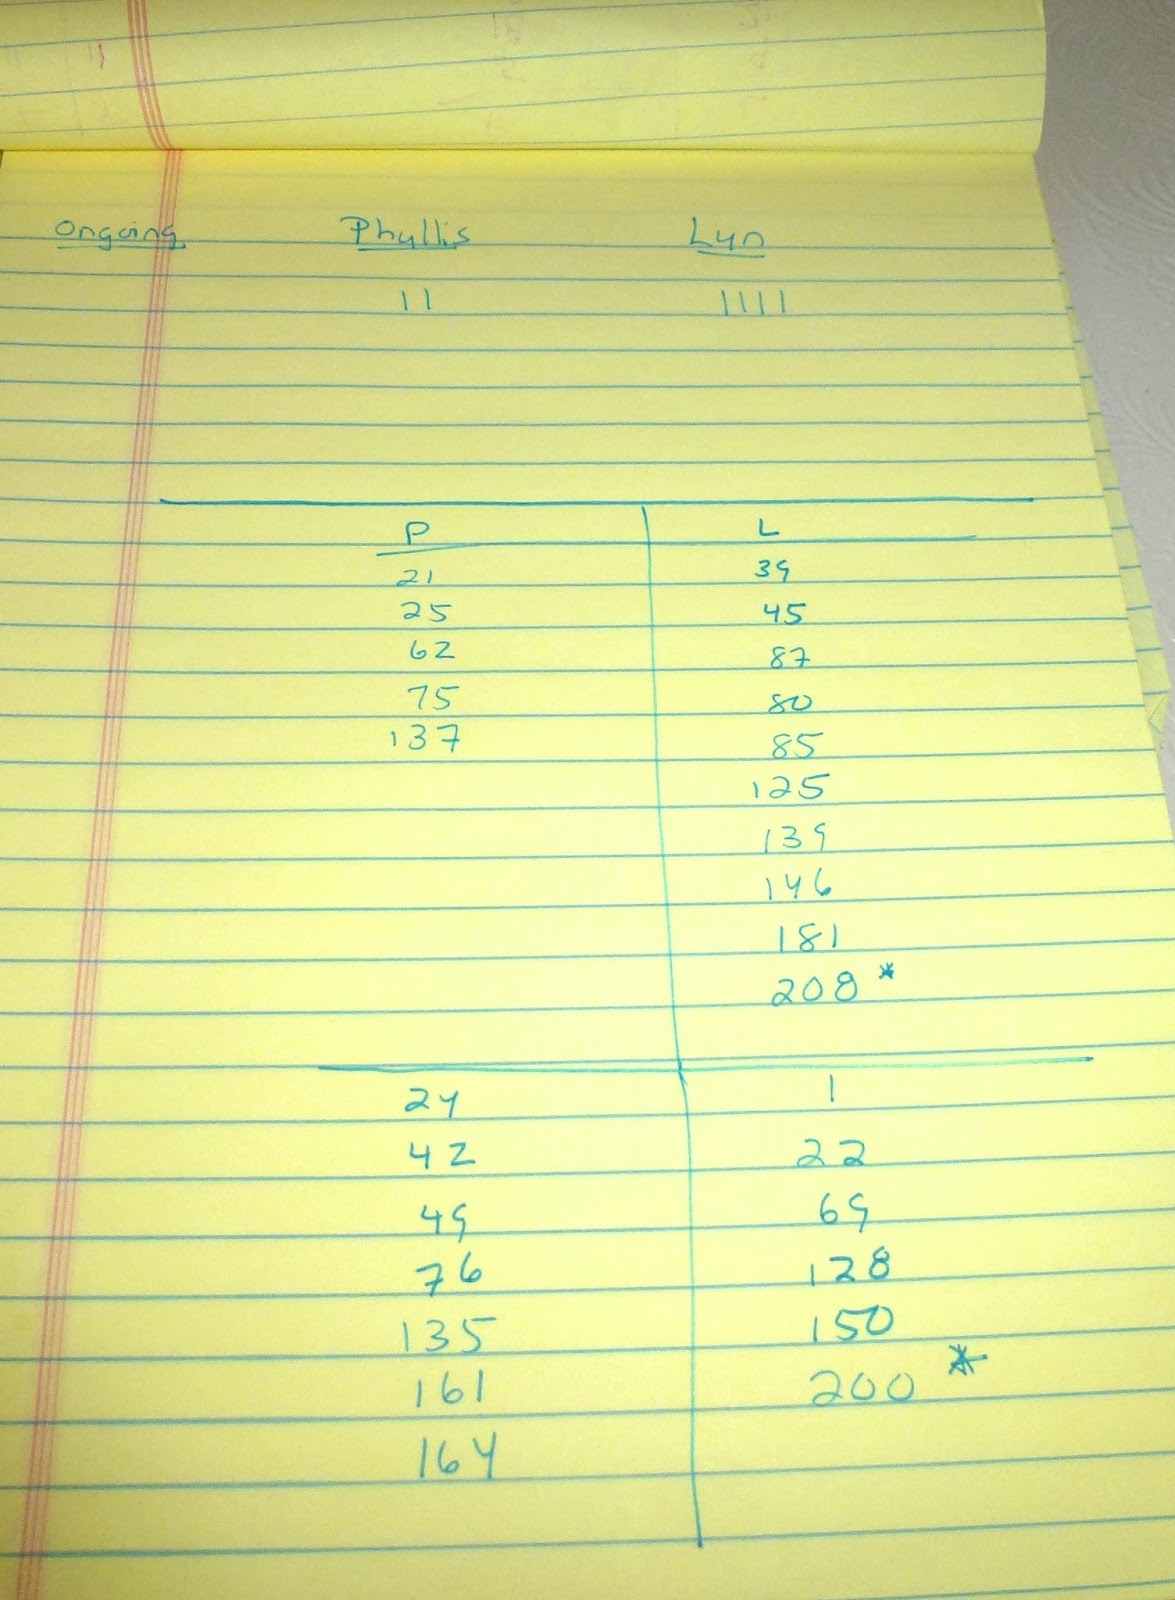 Ongoing Phyllis Lyn
11 1111
P L
21 39
25 45
62 87
75 80
137 85
125
139
146
181
208 *
24 1
42 22
49 69
76 128
135 150
161 200 *
164